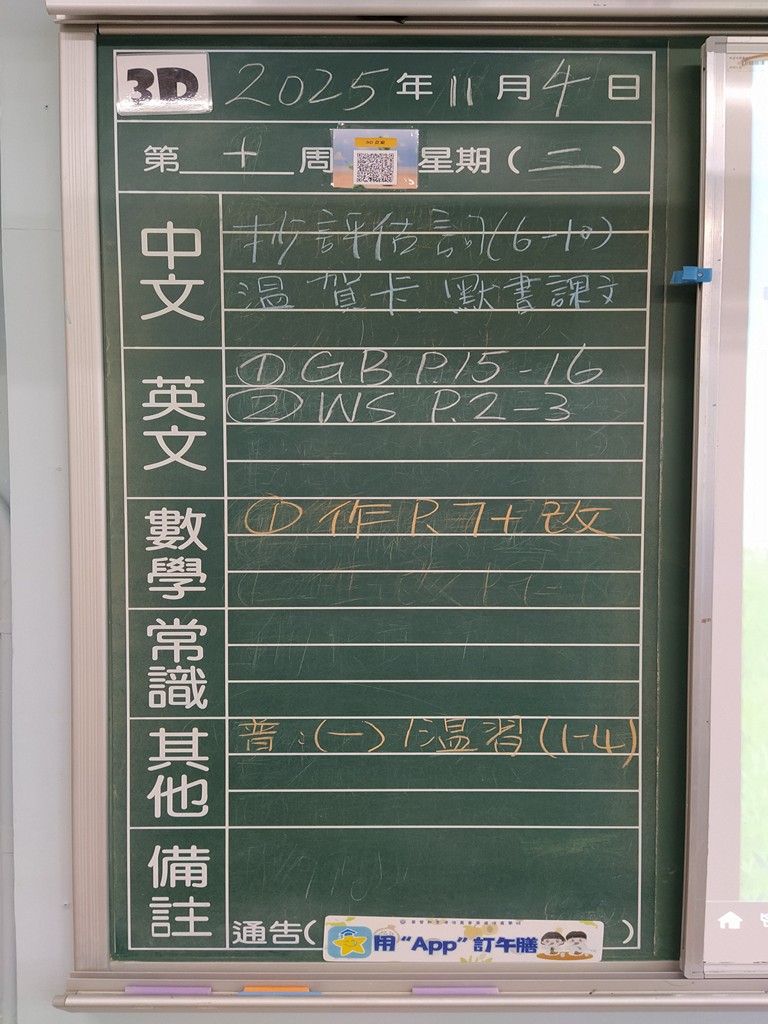 3D 2025年11月4日
第十周 星期(二)
中文
抄評估詞(6-10)
温賀卡默書課文
英文
① GB P.15-16
② WS P.2-3
數學
① 作 P.7+改
常識
其他
普:(一) 温習(1-4)
備註
通告( )
用“App”訂午膳